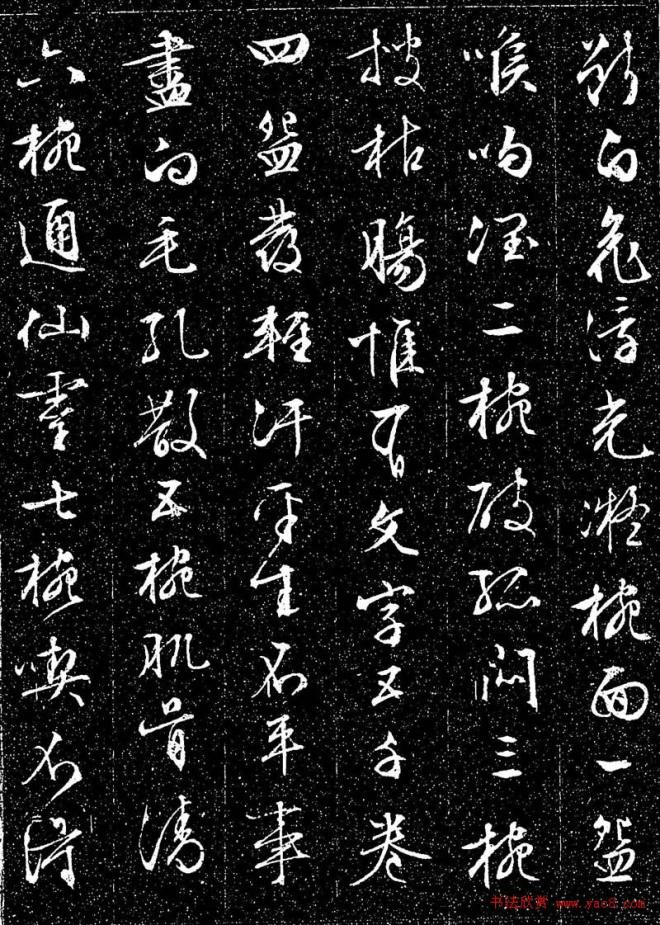 斷白花浮光凝椀面一盌
喉吻潤二椀破孤悶三椀
搜枯腸惟有文字五千卷
四盌發輕汗平生不平事
盡向毛孔散五椀肌骨清
六椀通仙靈七椀喫不得
书法欣赏 www.yac8.com